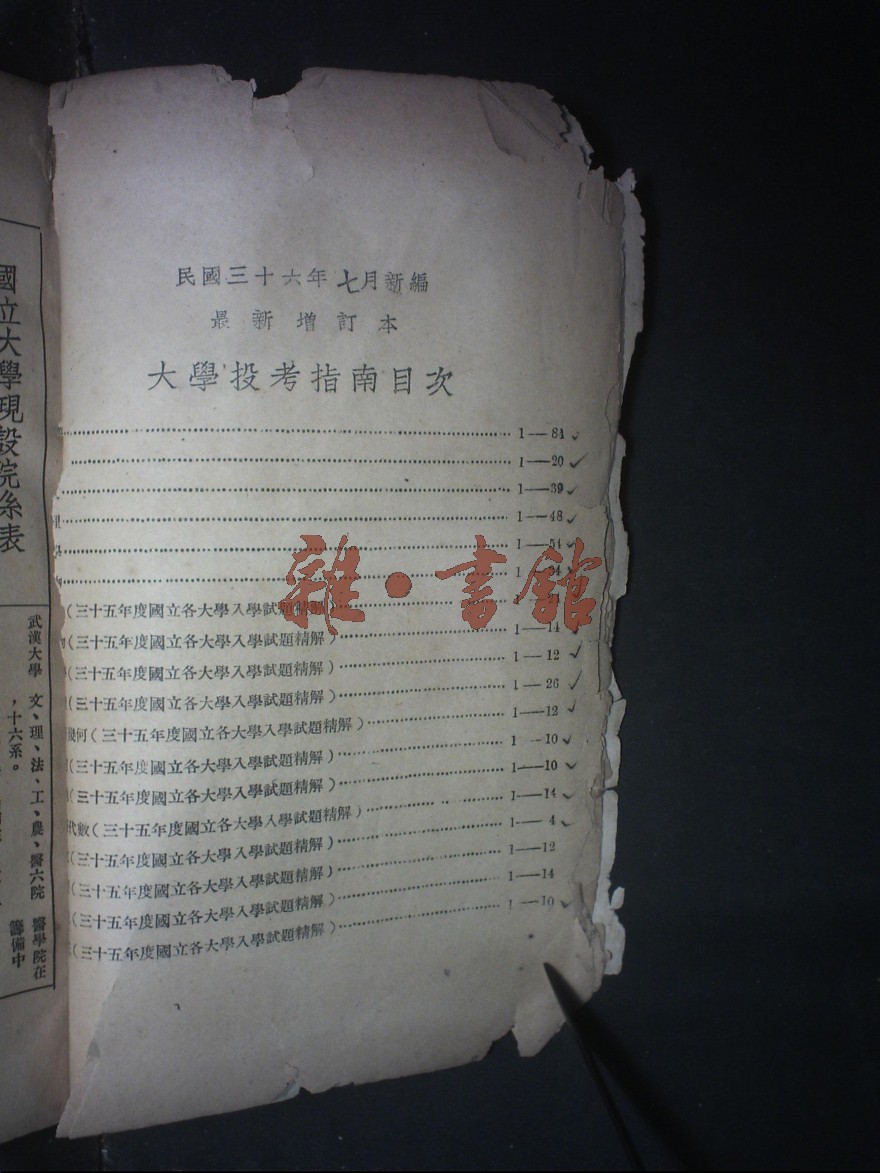 民國三十六年七月新編
最新增訂本
大學投考指南目次
1—81
1—20
1—39
1—48
1—54
(三十五年度國立各大學入學試題精解)
(三十五年度國立各大學入學試題精解) 1—14
(三十五年度國立各大學入學試題精解) 1—12
(三十五年度國立各大學入學試題精解) 1—26
幾何(三十五年度國立各大學入學試題精解) 1—12
(三十五年度國立各大學入學試題精解) 1—10
(三十五年度國立各大學入學試題精解) 1—10
代數(三十五年度國立各大學入學試題精解) 1—14
(三十五年度國立各大學入學試題精解) 1—4
(三十五年度國立各大學入學試題精解) 1—12
(三十五年度國立各大學入學試題精解) 1—14
(三十五年度國立各大學入學試題精解) 1—10
雜·書館
國立大學現設院系表
武漢大學 文、理、法、工、農、醫六院 醫學院在
，十六系。 籌備中